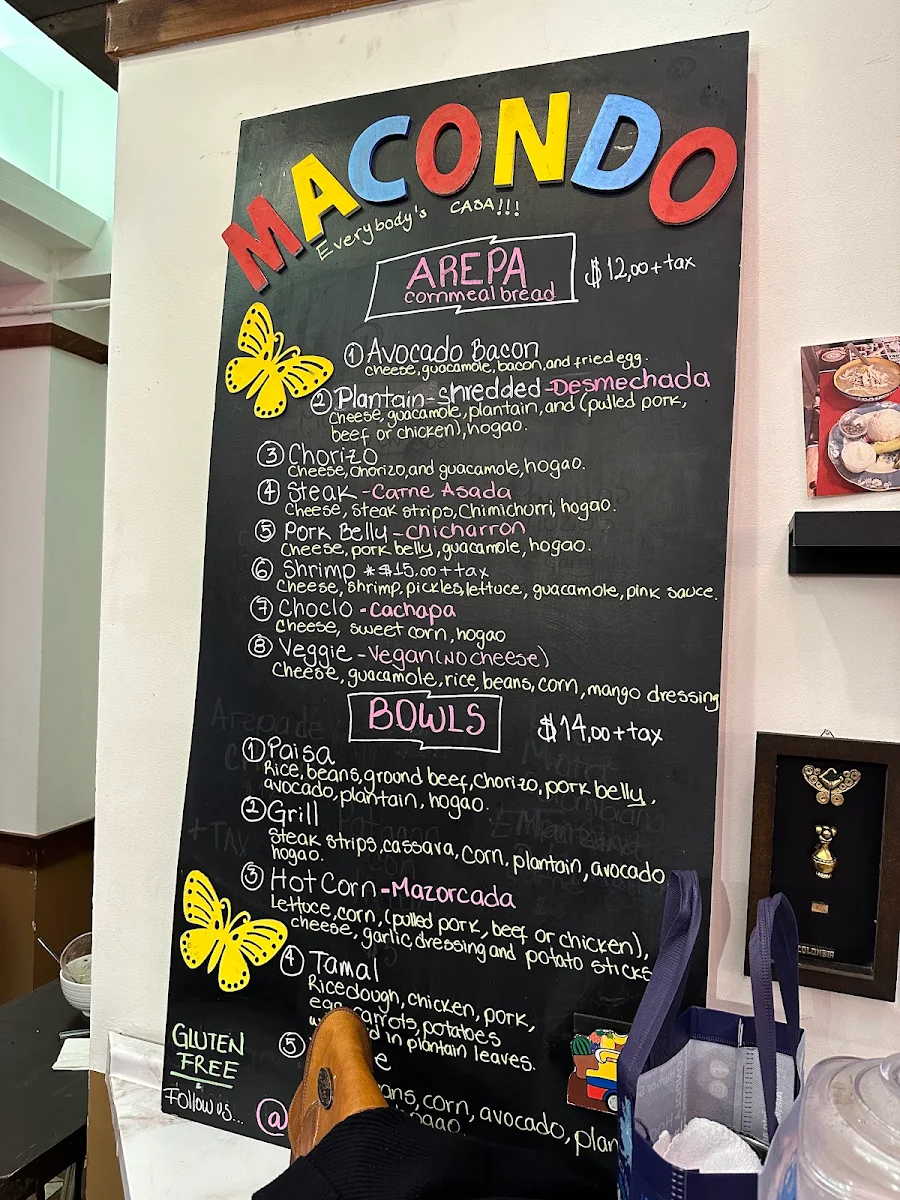 MACONDO
Everybody's CASA!!!
AREPA
cornmeal bread
$12,00+tax
1 Avocado Bacon
cheese, guacamole, bacon, and fried egg.
2 Plantain-shredded-Desmechada
Cheese, guacamole, plantain, and (pulled pork,
beef or chicken), hogao.
3 Chorizo
Cheese, Chorizo, and guacamole, hogao.
4 Steak-Carne Asada
Cheese, steak strips, Chimichorri, hogao.
5 Pork Belly-chicharron
Cheese, pork belly, guacamole, hogao.
6 Shrimp *$15.00+tax
Cheese, shrimp, pickles, lettuce, guacamole, pink sauce.
7 Choclo-Cachapa
Cheese, sweet corn, hogao
8 Veggie-Vegan (NO cheese)
Cheese, guacamole, rice, beans, corn, mango dressing
BOWLS
$14,00+tax
1 Paisa
Rice, beans, ground beef, chorizo, pork belly,
avocado, plantain, hogao.
2 Grill
Steak strips, cassava, corn, plantain, avocado
hogao.
3 Hot Corn-Mazorcada
Lettuce, corn, (pulled pork, beef or chicken),
cheese, garlic, dressing and potato sticks
4 Tamal
Rice dough, chicken, pork,
egg, carrots, potatoes
in plantain leaves.
5
corn, avocado,
hogao
GLUTEN
FREE
&
Follow us... @
COLOMBIA